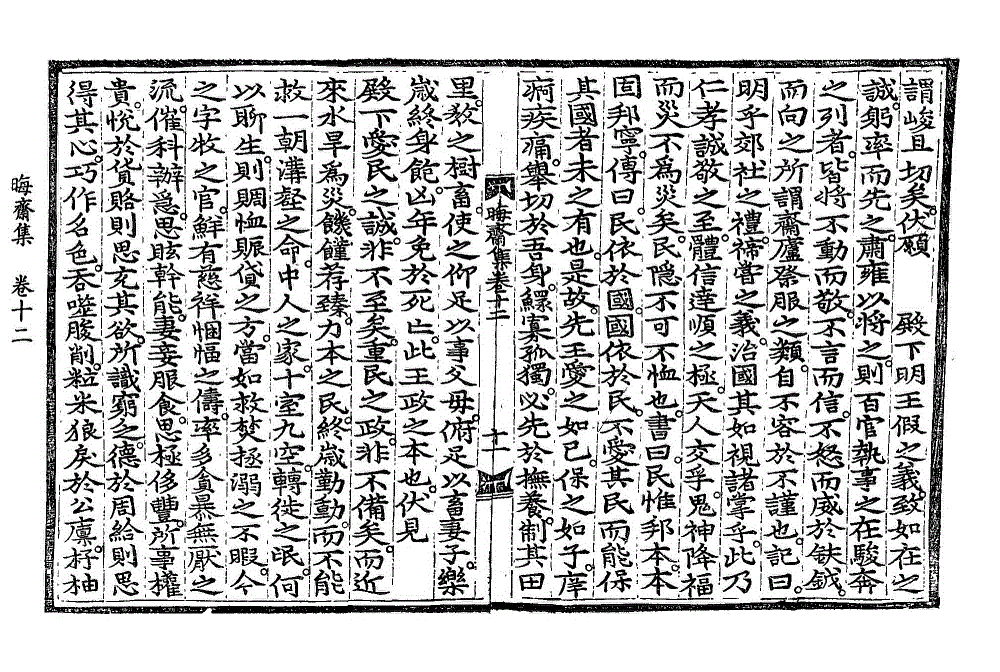 謂峻且切矣伏願　　殿下明王假之義致如在之
誠躬率而先之肅雍以將之則百官執事之在駿奔
之列者皆將不動而敬不言而信不怒而威於鈇鉞
而向之所謂齋廬祭服之類自不容於不謹也記曰
明乎郊社之禮禘嘗之義治國其如視諸掌乎此乃
仁孝誠敬之至體信達順之極天人交孚鬼神降福
而災不爲災矣民隱不可不恤也書曰民惟邦本本
固邦寧傳曰民依於國國依於民不愛其民而能保
其國者未之有也是故先王愛之如己保之如子庠
痾疾痛擧切於吾身鰥寡孤獨必先於撫養制其田
晦齋集卷十二
十一
里敎之樹畜使之仰足以事父母俯足以畜妻子樂
歲終身飽凶年免於死亡此王政之本也伏見
殿下愛民之誠非不至矣重民之政非不備矣而近
來水旱爲災饑饉荐臻力本之民終歲勤動而不能
救一朝溝壑之命中人之家十室九空轉徙之氓何
以聊生則賙恤賑貸之方當如救焚拯溺之不暇今
之字牧之官鮮有慈祥悃愊之儔率多貪暴無厭之
流催科辦急思眩幹能妻妾服食思極侈豐所事權
貴悅於貨賂則思充其欲所識窮乏德於周給則思
得其心巧作名色呑噬朘削粒米狼戾於公廩杼柚
晦齋集　卷十二